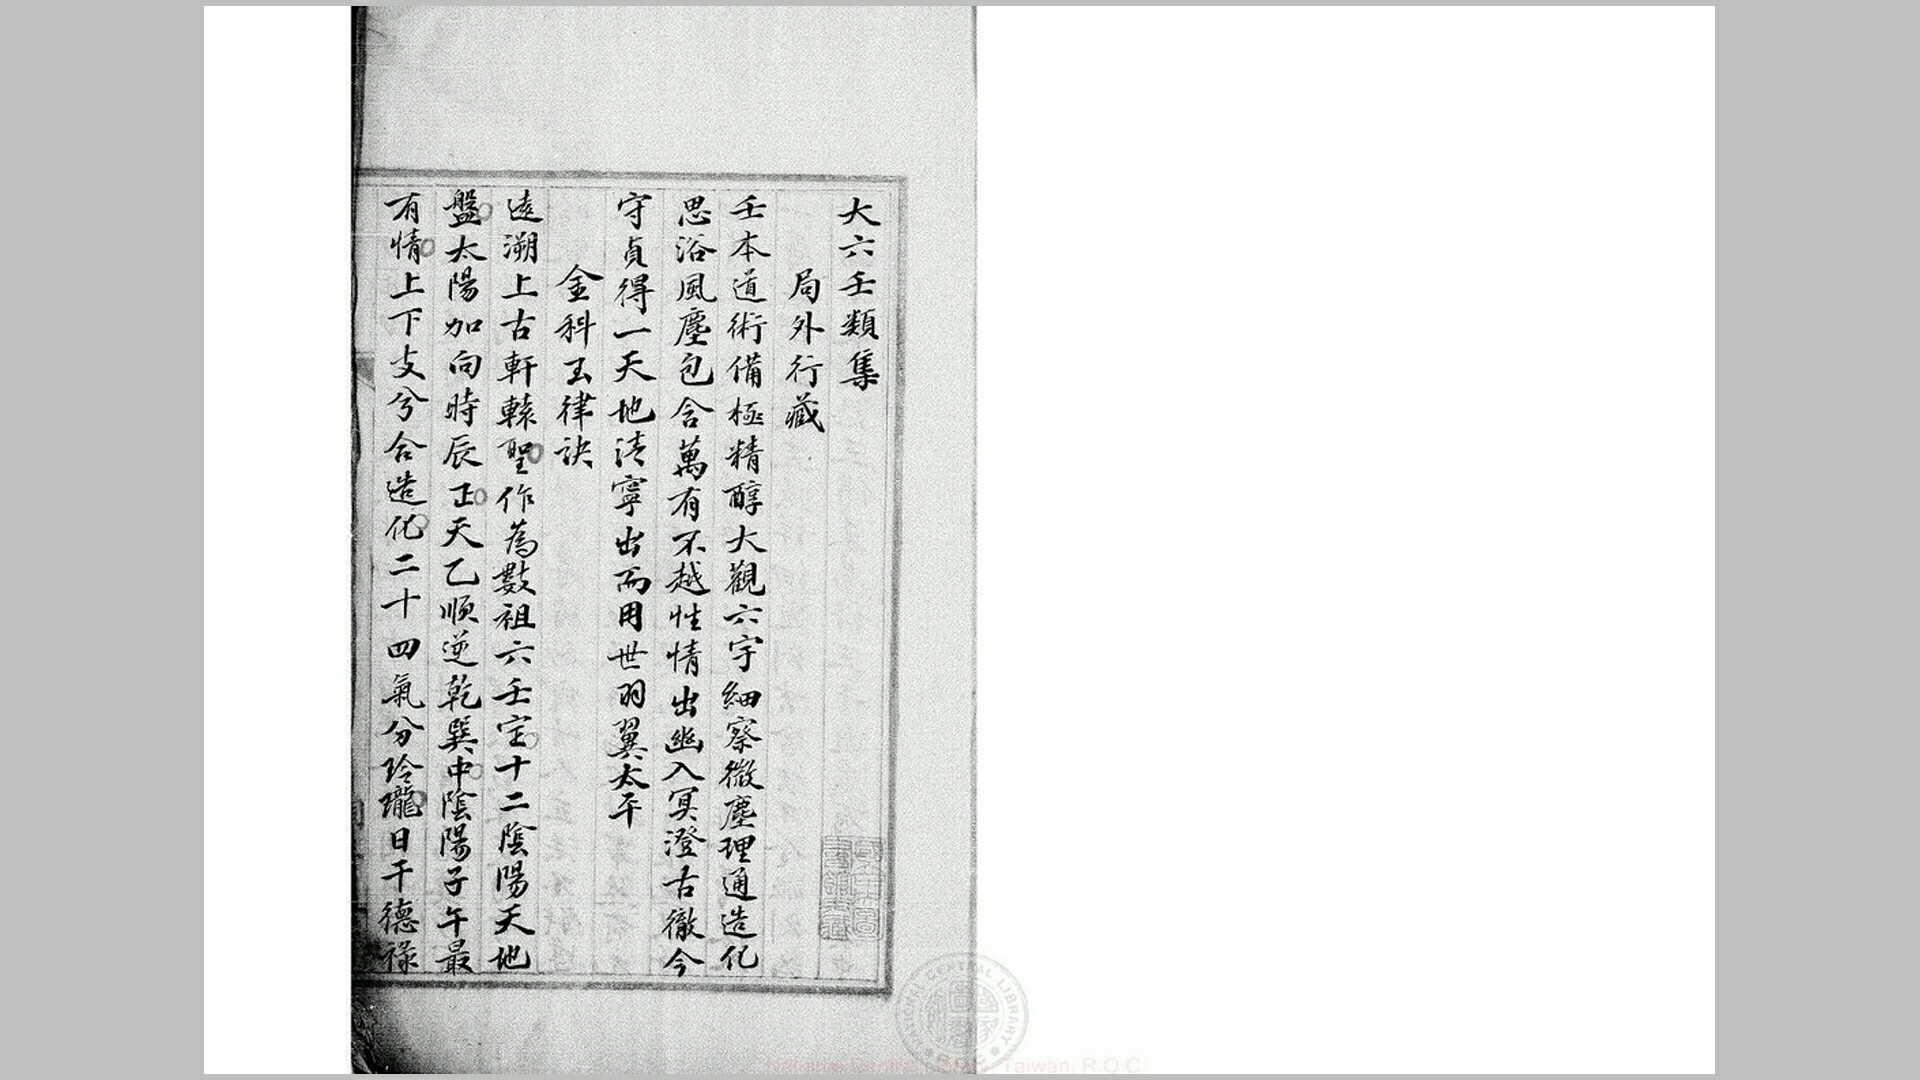 大六壬類集
局外行藏
壬本道術備極精醇大觀六宇細察微塵理通造化
思浴風塵包含萬有不越性情出幽入冥澄古徹今
守貞得一天地清寧出而用世羽翼太平
金科玉律訣
遠溯上古軒轅聖作為數祖六壬定十二陰陽天地
盤太陽加向時辰正天乙順逆乾巽中陰陽子午最
有情上下支兮合造化二十四氣分玲瓏日干德祿
NATIONAL CENTRAL LIBRARY
Taiwan, R.O.C.